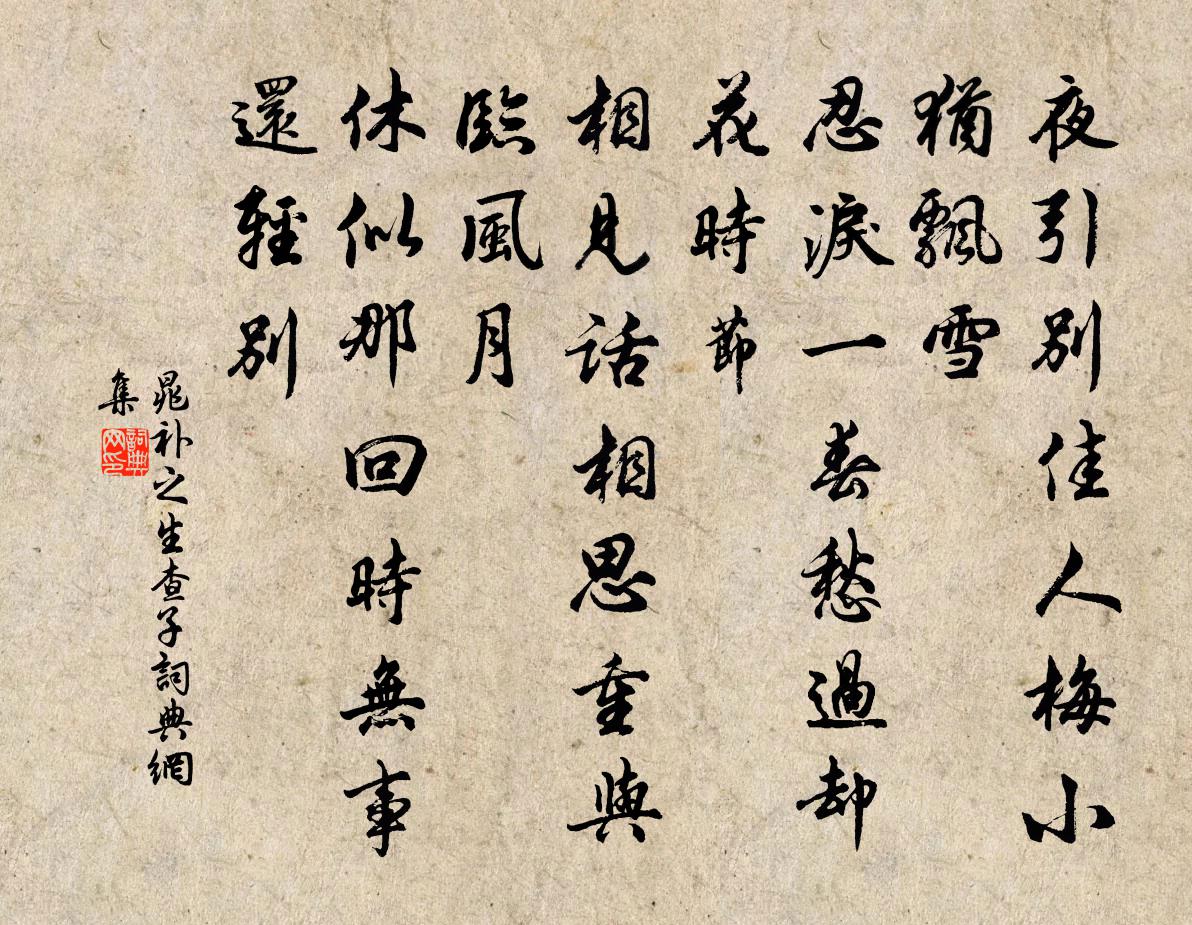 夜引別佳人梅小
猶飄雪
忍淚一春愁過却
花時節
相見話相思重與
臨風月
休似那回時無事
還輕別
晁补之生查子詞典網
集
詞典
网印